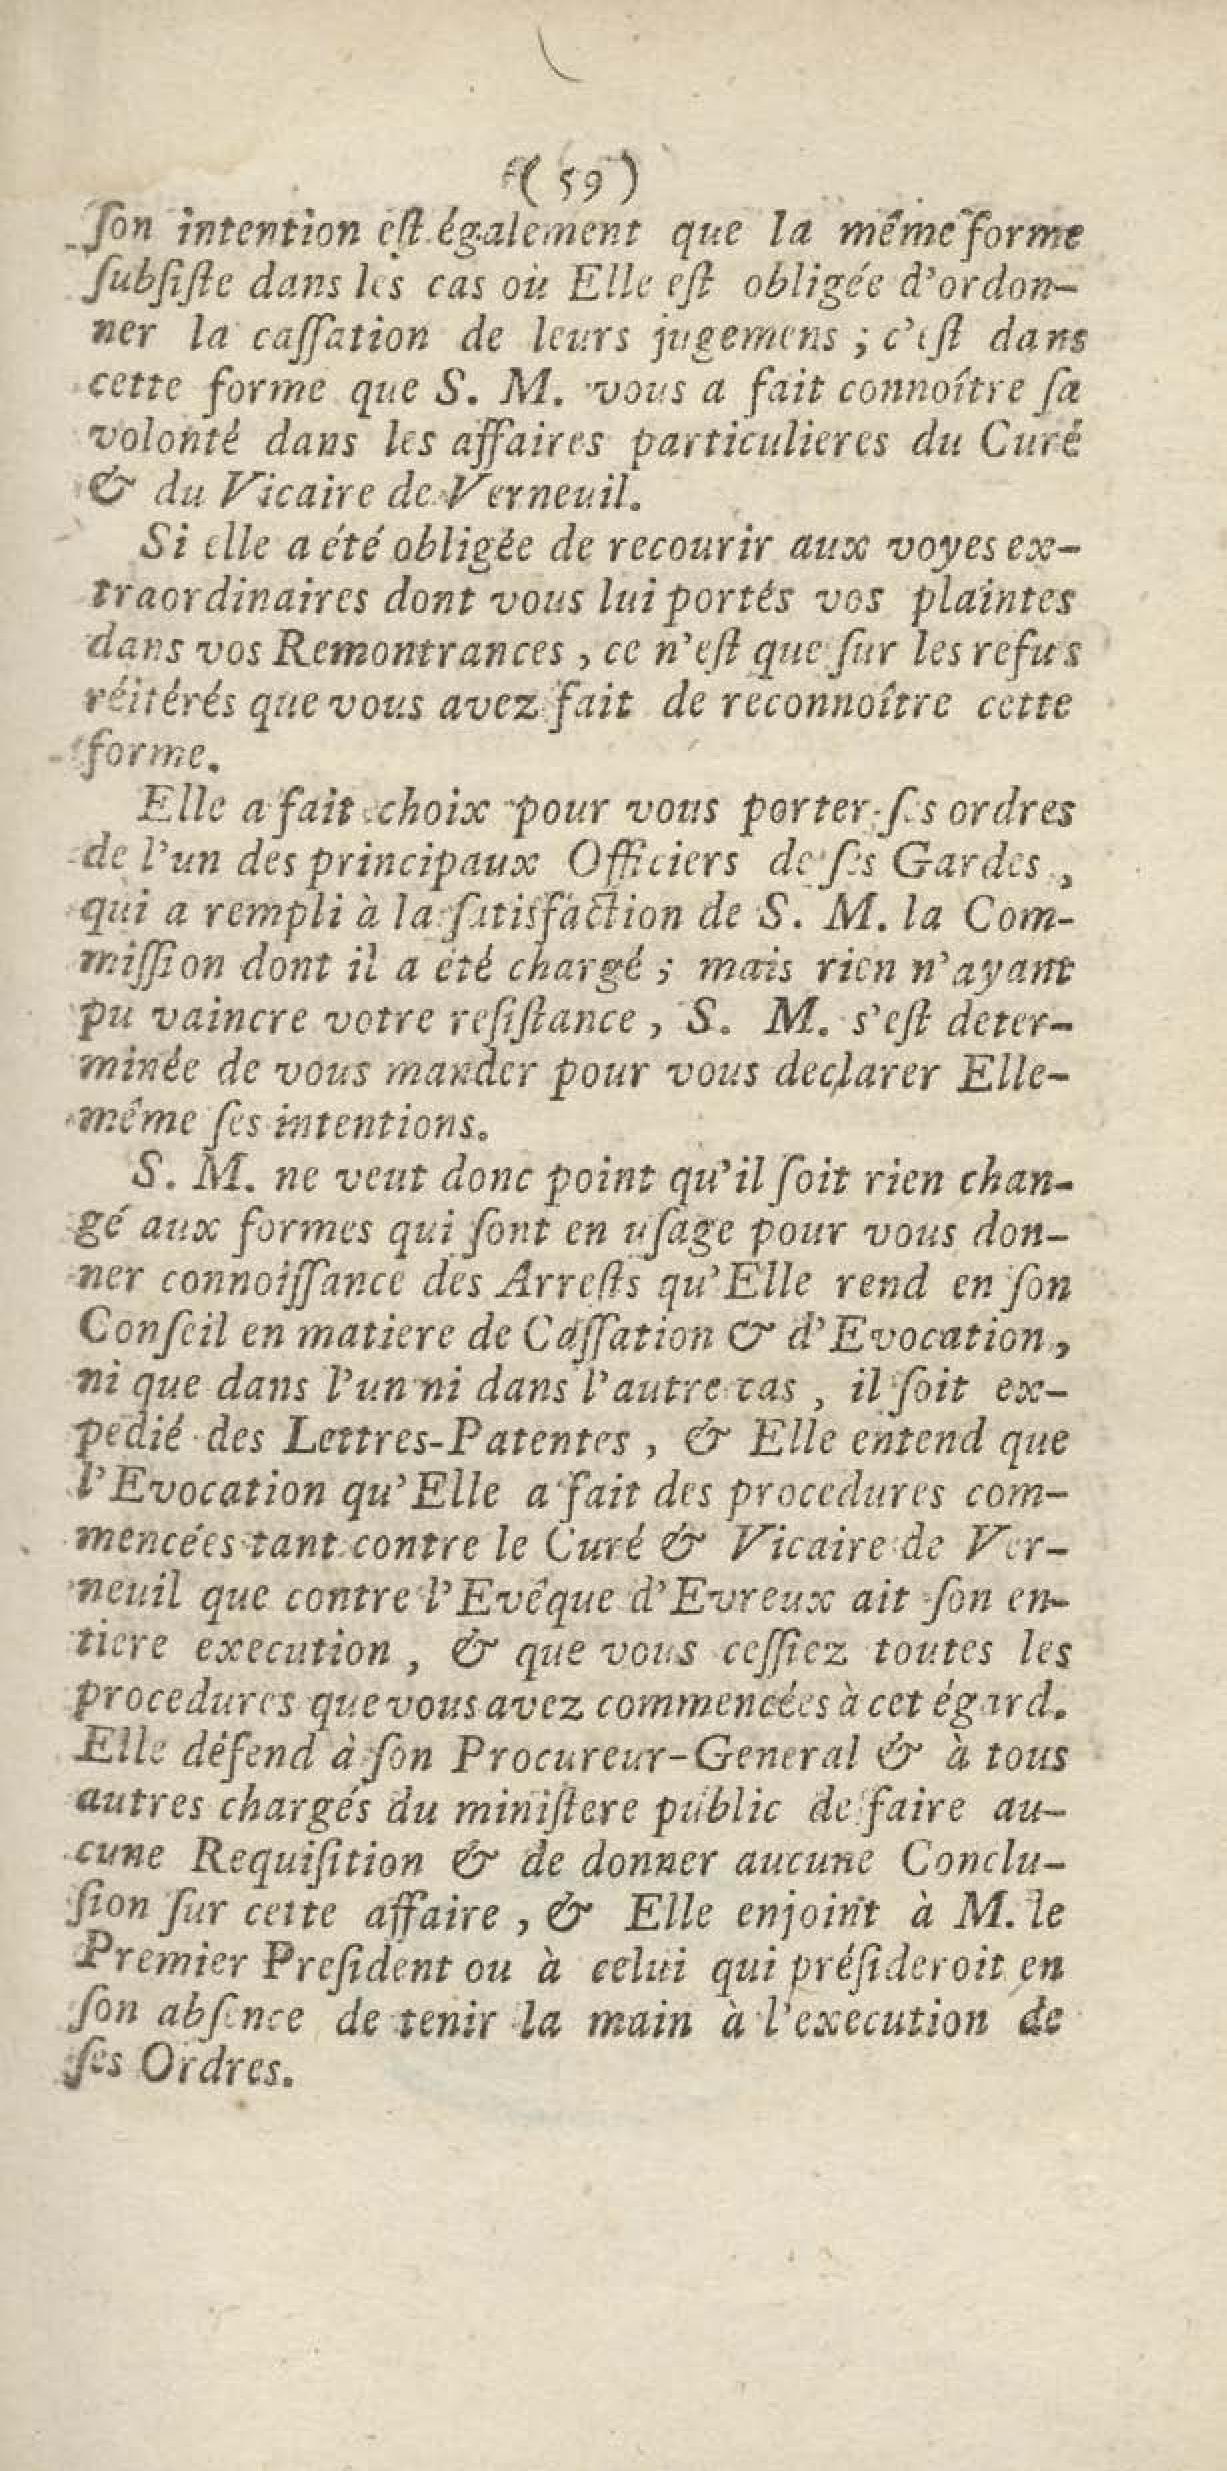 ( 59 )
ſon intention eſt également que la même forme
ſubſiſte dans les cas où Elle eſt obligée d'ordon-
ner la caſſation de leurs jugemens ; c'eſt dans
cette forme que S. M. vous a fait connoître ſa
volonté dans les affaires particulieres du Curé
& du Vicaire de Verneuil.
Si elle a été obligée de recourir aux voyes ex-
traordinaires dont vous lui portés vos plaintes
dans vos Remontrances , ce n'eſt que ſur les refus
réitérés que vous avez fait de reconnoître cette
forme.
Elle a fait choix pour vous porter ſes ordres
de l'un des principaux Officiers de ſes Gardes ,
qui a rempli à la ſatisfaction de S. M. la Com-
miſſion dont il a été chargé ; mais rien n'ayant
pu vaincre votre reſiſtance , S. M. s'eſt deter-
minée de vous mander pour vous declarer Elle-
même ſes intentions.
S. M. ne veut donc point qu'il ſoit rien chan-
gé aux formes qui ſont en uſage pour vous don-
ner connoiſſance des Arreſts qu'Elle rend en ſon
Conſeil en matiere de Caſſation & d'Evocation ,
ni que dans l'un ni dans l'autre cas , il ſoit ex-
pedié des Lettres-Patentes , & Elle entend que
l'Evocation qu'Elle a fait des procedures com-
mencées tant contre le Curé & Vicaire de Ver-
neuil que contre l'Evêque d'Evreux ait ſon en-
tiere execution , & que vous ceſſiez toutes les
procedures que vous avez commencées à cet égard.
Elle défend à ſon Procureur-General & à tous
autres chargés du miniſtere public de faire au-
cune Requiſition & de donner aucune Conclu-
ſion ſur cette affaire , & Elle enjoint à M. le
Premier Preſident ou à celui qui préſideroit en
ſon abſence de tenir la main à l'execution de
ſes Ordres.